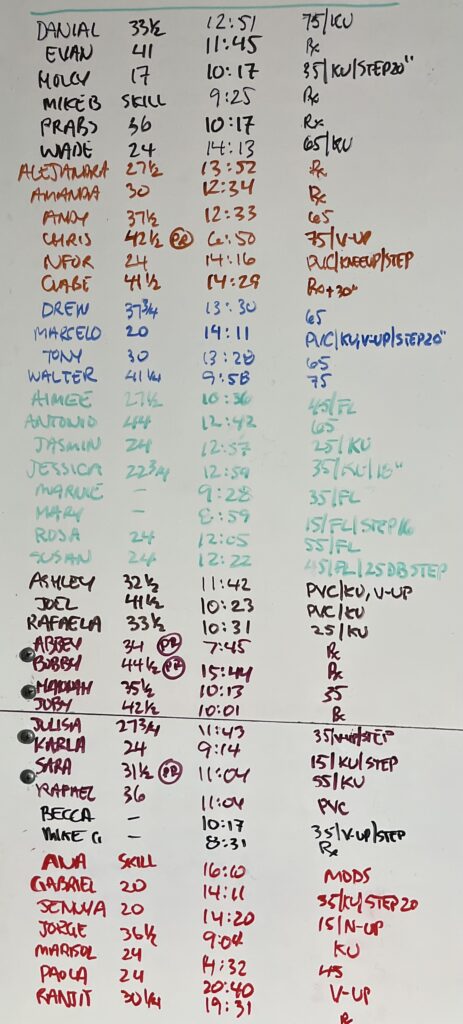 DANIAL 33½ 12:51 75/KU
EVAN 41 11:45 Rx
MOLLY 17 10:17 35/KU/STEP20"
MIKE B SKILL 9:25 Rx
PRABS 36 10:17 Rx
WADE 24 14:13 65/KU
ALEJANDRA 27½ 13:52 Rx
AMANDA 30 12:34 Rx
ANDY 37½ 12:33 65
CHRIS 42½ PR 6:50 75/V-UP
NFOR 24 14:16 PVC/KNEEUP/STEP
GABE 41½ 14:29 Rx+30"
DREW 37¾ 13:30 65
MARCELO 20 14:11 PVC/KU,V-UP/STEP20"
TONY 30 13:28 65
WALTER 41¼ 9:58 75
AIMEE 27½ 10:36 45/FL
ANTONIO 44 12:42 65
JASMIN 24 12:57 25/KU
JESSICA 22¾ 12:59 35/KU/18"
- 9:28 35/FL
MARY - 8:59 15/FL/STEP16
ROSA 24 12:05 55/FL
SUSAN 24 12:22 45/FL/25DBSTEP
ASHLEY 32½ 11:42 PVC/KU, V-UP
JOEL 41½ 10:23 PVC/KU
RAFAELA 33½ 10:31 25/KU
ABBEY 34 PR 7:45 Rx
BOBBY 44½ PR 15:44 Rx
35½ 10:13 35
JOBY 42½ 10:01 Rx
JULISA 27¾ 11:43 35/V-UP/STEP
KARLA 24 9:14 15/KU/STEP
SARA 31½ PR 11:04 55/KU
RAPHAEL 36 11:04 PVC
BECCA - 10:17 35/V-UP/STEP
MIKE G - 8:31 Rx
ANA SKILL MODS
GABRIEL 20 14:11 35/KU/STEP20
20 14:20 15/V-UP
JORGE 36½ 9:04 KU
MARISOL 24 14:32 45
PAOLA 24 20:40 V-UP
RANJIT 30¼ 19:31 R